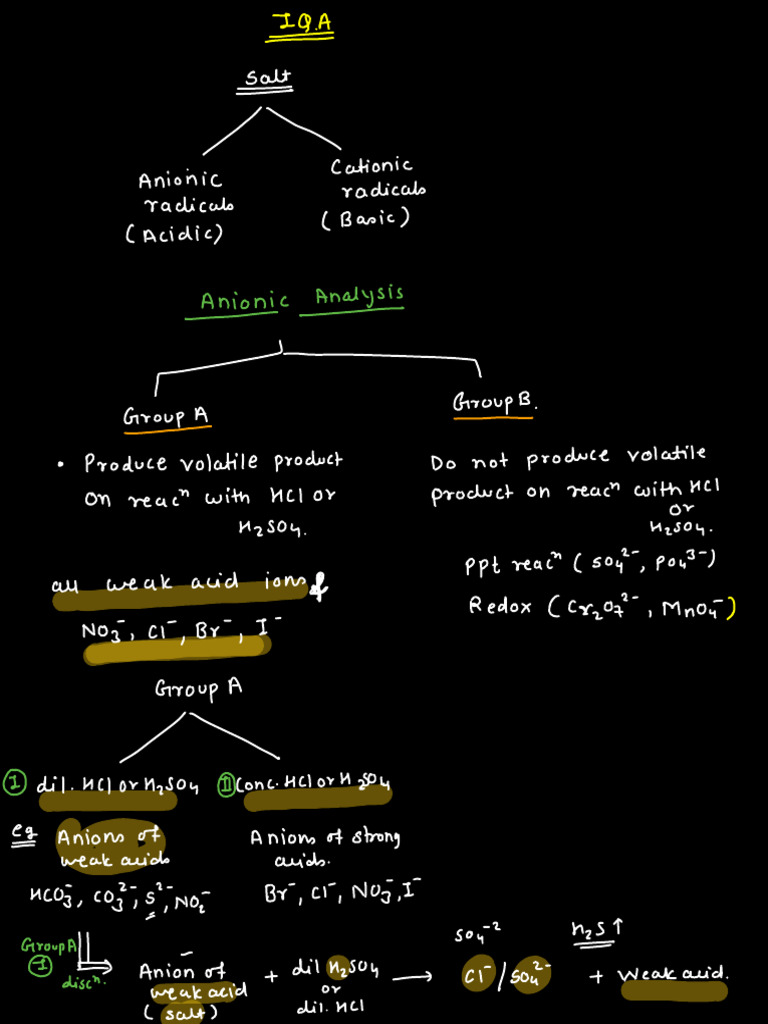 IQ.A
Salt
Anionic
radicals
(Acidic)
Cationic
radicals
(Basic)
Anionic Analysis
Group A
• Produce volatile product
on reacⁿ with HCl or
H₂SO₄.
all weak acid ions &
NO₃⁻, Cl⁻, Br⁻, I⁻
Group B.
Do not produce volatile
product on reacⁿ with HCl
or
H₂SO₄.
ppt reacⁿ (SO₄²⁻, PO₄³⁻)
Redox (Cr₂O₇²⁻, MnO₄⁻)
Group A
I dil. HCl or H₂SO₄
eg Anions of
weak acids
HCO₃⁻, CO₃²⁻, S²⁻, NO₂⁻
II Conc. HCl or H₂SO₄
Anions of strong
acids.
Br⁻, Cl⁻, NO₃⁻, I⁻
Group A
I
discⁿ.
SO₄⁻²
H₂S↑
Anion of + dil H₂SO₄ → Cl⁻/SO₄²⁻ + Weak acid.
weak acid or
(salt) dil. HCl